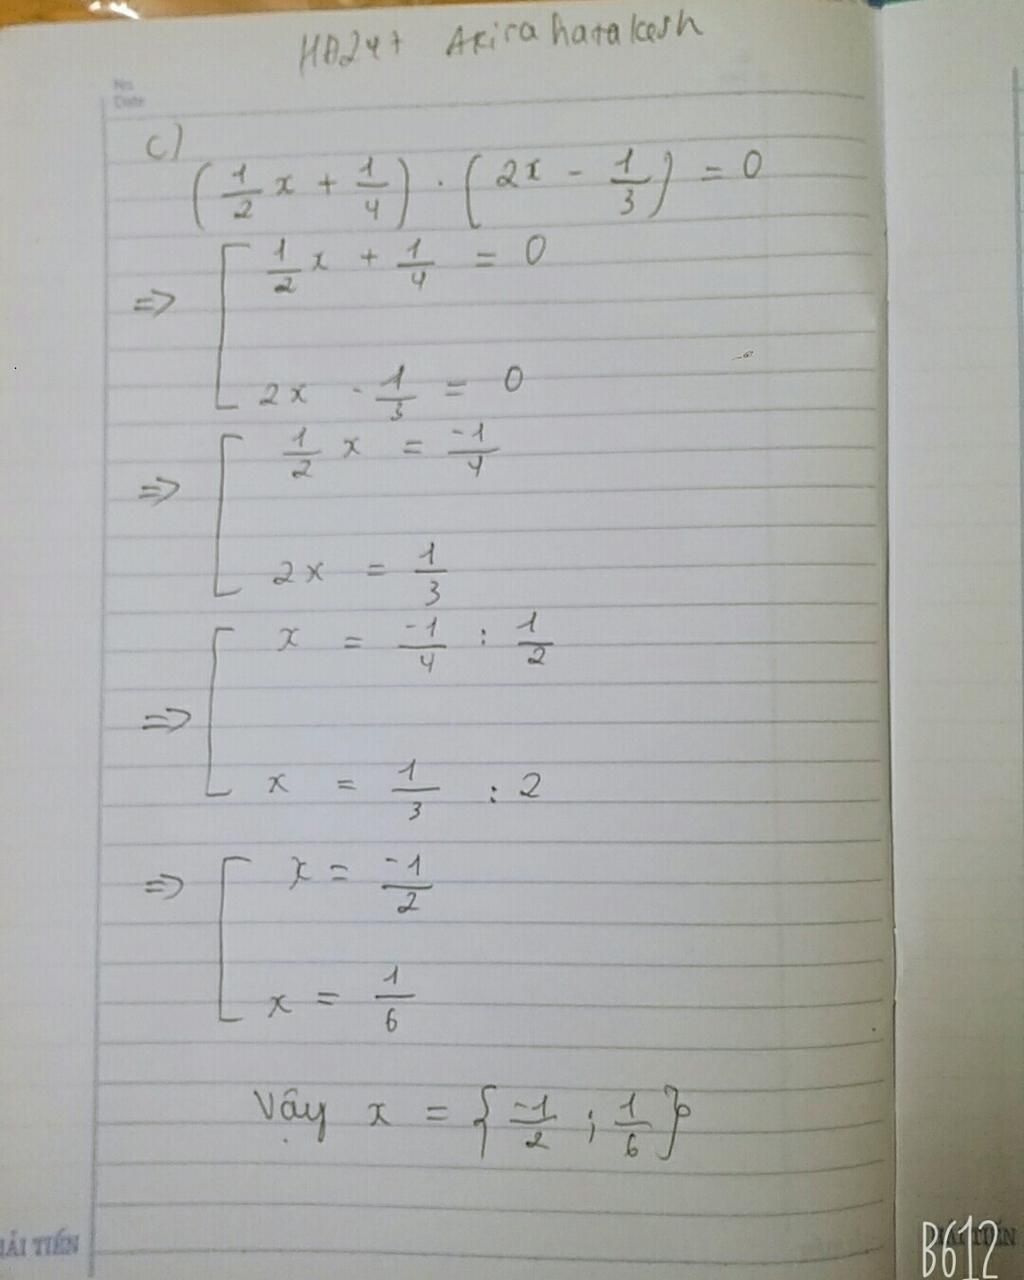 HĐ247 Akira hatakesh
No.
Date
c)
(1/2 x + 1/4) . (2x - 1/3) = 0
=> [ 1/2 x + 1/4 = 0
2x - 1/3 = 0
=> [ 1/2 x = -1/4
2x = 1/3
=> [ x = -1/4 : 1/2
x = 1/3 : 2
=> [ x = -1/2
x = 1/6
Vậy x = {-1/2 ; 1/6}
HẢI TIẾN
HẢI TIẾN
B612